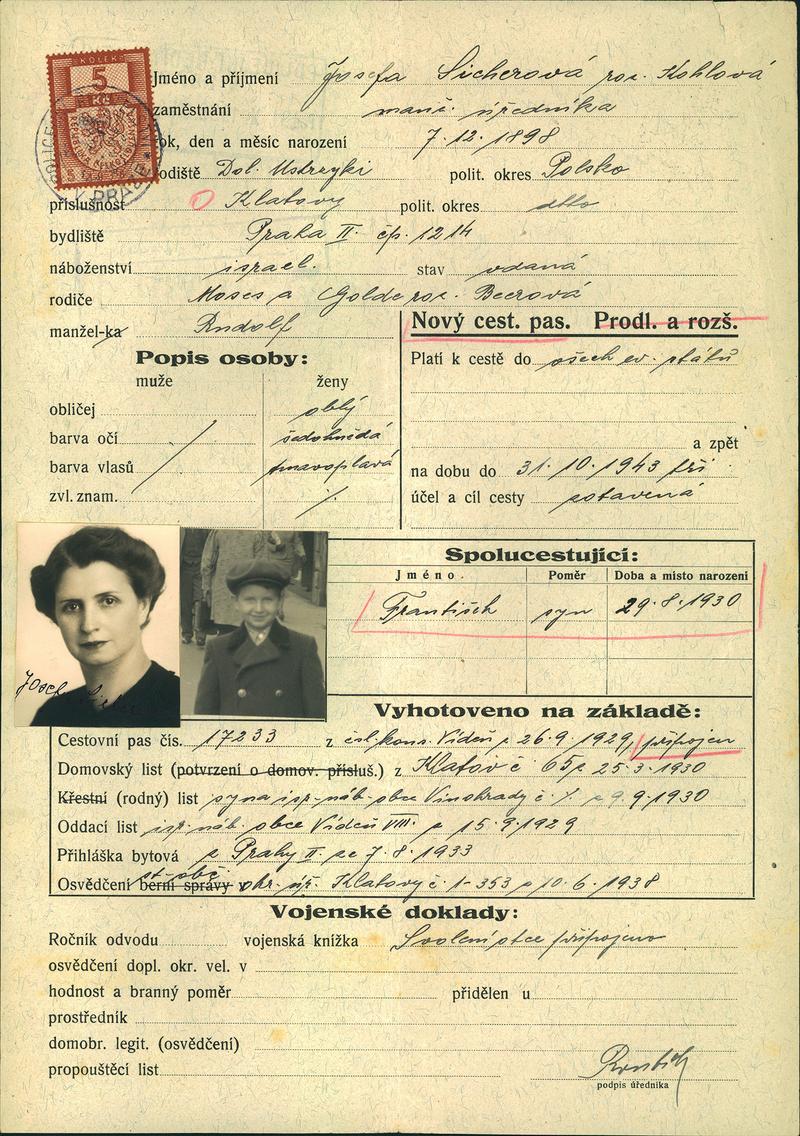 KOLEK
5
Kč
POLICE
V PRAZE
Jméno a příjmení Josefa Sicherová roz. Kohlová
zaměstnání manž. úředníka
rok, den a měsíc narození 7.12.1898
rodiště Dol. Ustrzyki polit. okres Polsko
příslušnost Klatovy polit. okres dtto
bydliště Praha II. čp. 1214
náboženství israel. stav vdaná
rodiče Moses a Golde roz. Beerová
manžel-ka Rudolf
Nový cest. pas. Prodl. a rozš.
Popis osoby:
muže ženy
obličej oblý
barva očí šedohnědá
barva vlasů tmavoplavá
zvl. znam. /.
Platí k cestě do všech ev. států
a zpět
na dobu do 31.10.1943 tří
účel a cíl cesty
Spolucestující:
Jméno. Poměr Doba a místo narození
František syn 29.8.1930
Josefa Sicher
Vyhotoveno na základě:
Cestovní pas čís. 17233 z čsl. kons. Vídeň z 26.9.1929, připojen
Domovský list (potvrzení o domov. přísluš.) z Klatov č 65 z 25.3.1930
Křestní (rodný) list syna isr. náb. obce Vinohrady č. /. z 9.9.1930
Oddací list isr. náb. obce Vídeň VIII. z 15.9.1929
Přihláška bytová z Prahy II ze 7.8.1933
st. obč.
Osvědčení berní správy okr. úř. Klatovy č. 1-353 z 10.6.1938
Vojenské doklady:
Ročník odvodu vojenská knížka Svolení otce připojeno
osvědčení dopl. okr. vel. v
hodnost a branný poměr přidělen u
prostředník
domobr. legit. (osvědčení)
propouštěcí list
podpis úředníka